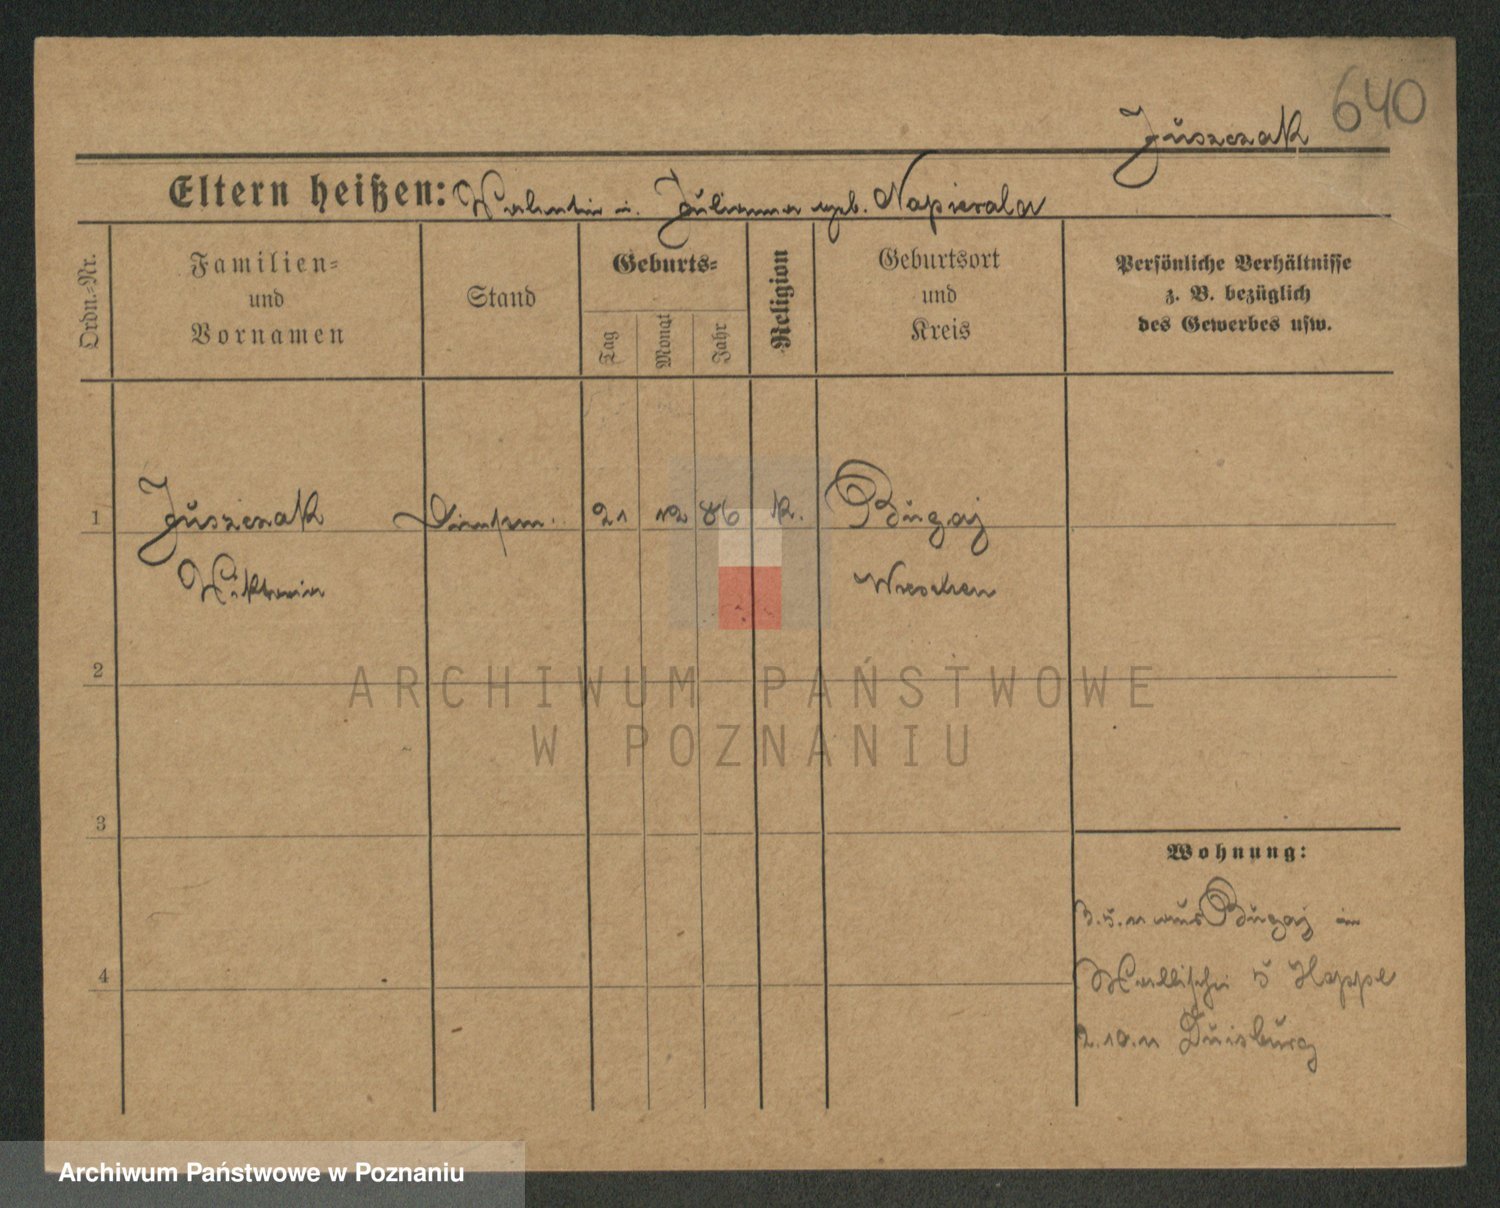 640
Juszczak
Eltern heißen: Valentin u. Julianna geb. Napierala
Ordn.-Nr.
Familien-
und
Vornamen
Stand
Geburts-
Tag
Monat
Jahr
Religion
Geburtsort
und
Kreis
Persönliche Verhältnisse
z. B. bezüglich
des Gewerbes usw.
1 Juszczak 21 12 86 k. Bugaj
Wiktoria Wreschen
2
3
4
Wohnung:
3.5.11 aus Bugaj in
5 Hoppe
2.10.11 Duisburg
ARCHIWUM PAŃSTWOWE
W POZNANIU
Archiwum Państwowe w Poznaniu